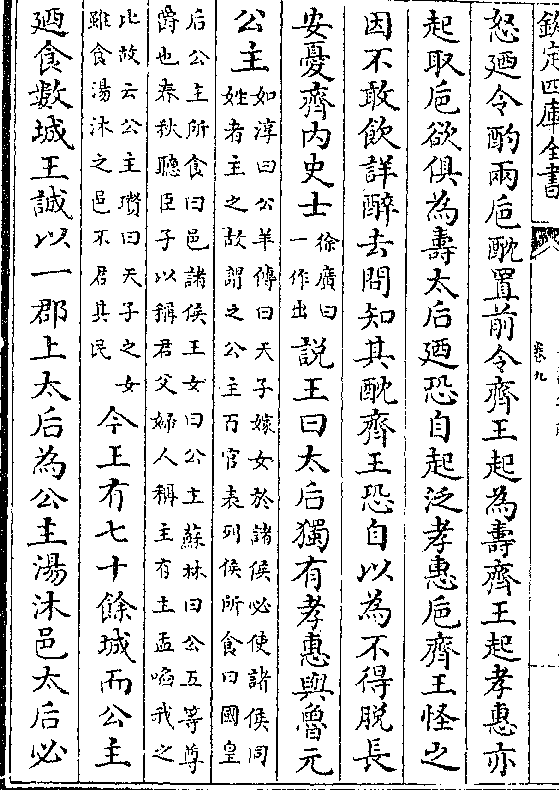 欽定四庫全書
卷九
怒廼令酌兩巵酖置前令齊王起為壽齊王起孝惠亦
起取巵欲俱為壽太后廼恐自起泛孝惠巵齊王怪之
因不敢飲詳醉去問知其酖齊王恐自以為不得脫長
安憂齊内史士
徐廣曰
一作出
説王曰太后獨有孝惠與魯元
公主
如淳曰公羊傳曰天子嫁女於諸侯必使諸侯同
姓者主之故謂之公主百官表列侯所食曰國皇
后公主所食曰邑諸侯王女曰公主蘇林曰公五等尊
爵也春秋聽臣子以稱君父婦人稱主有主孟㗖我之
比故云公主瓚曰天子之女
雖食湯沐之邑不君其民
今王有七十餘城而公主
廼食數城王誠以一郡上太后為公主湯沐邑太后必